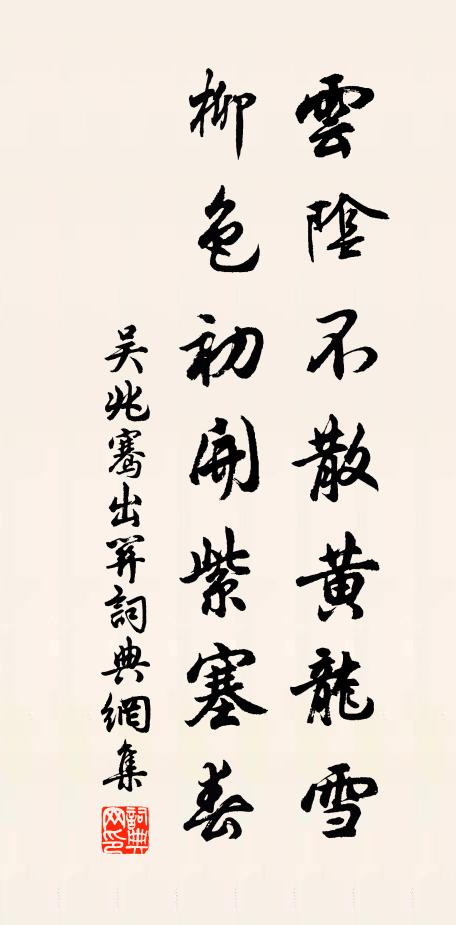 雲陰不散黃龍雪
柳色初開紫塞春
吴兆騫出關詞典網集
詞典網印